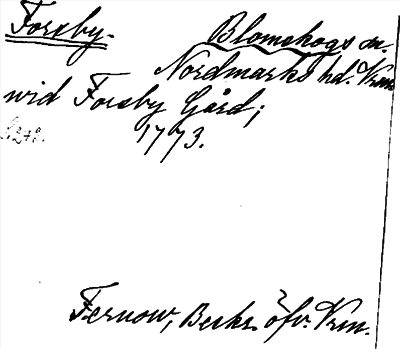 Forsby. Blomskogs sn.
Nordmarks hd. Vrm.
wid Forsby Gård;
S. 278. 1773.
Fernow, Beskr. öfv. Vrm.